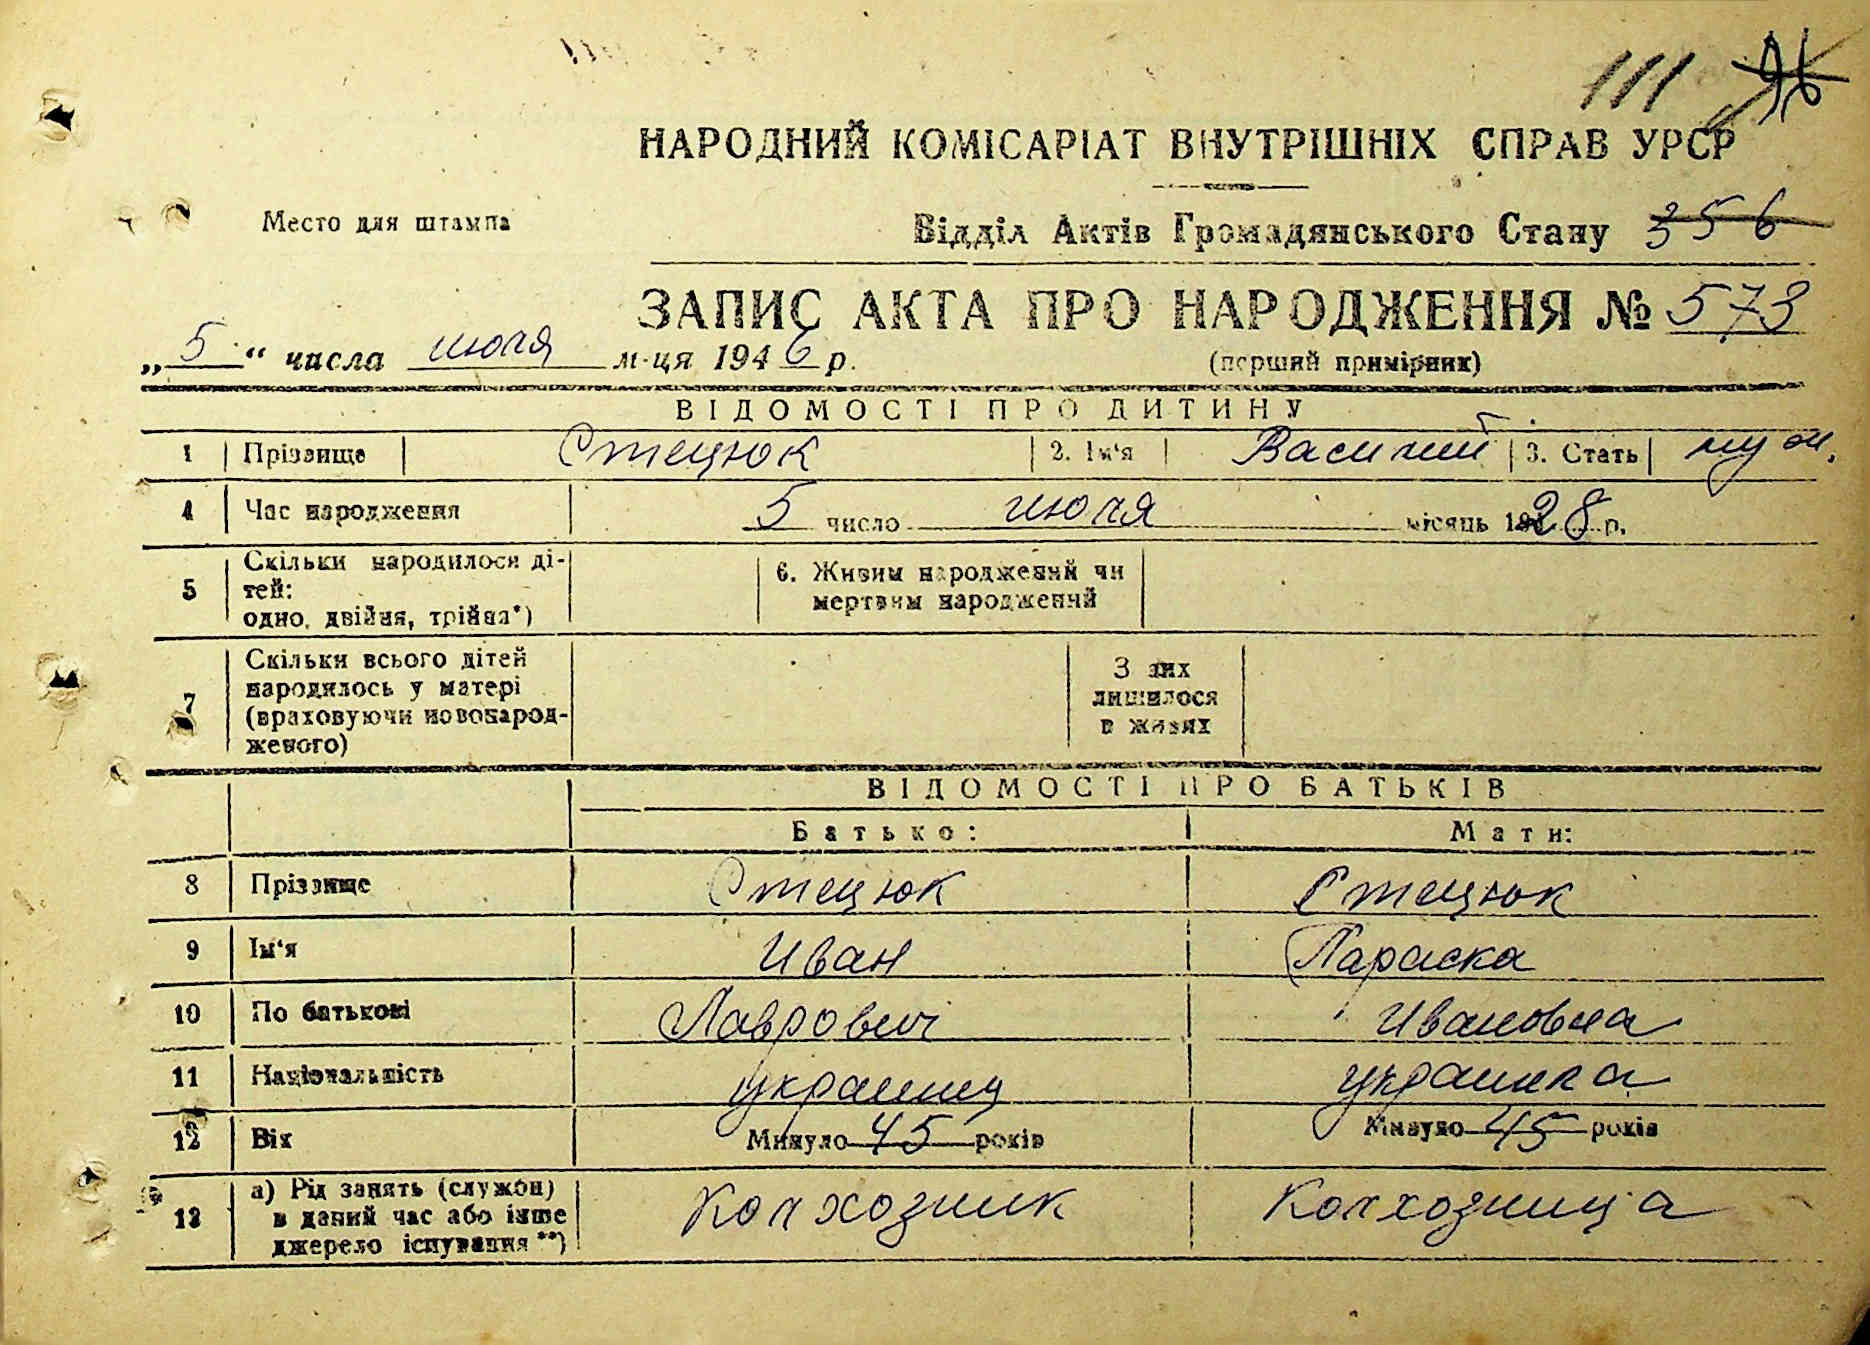 111 96
НАРОДНИЙ КОМІСАРІАТ ВНУТРІШНІХ СПРАВ УРСР
Место для штампа
Відділ Актів Громадянського Стану 356
ЗАПИС АКТА ПРО НАРОДЖЕННЯ № 573
„5“ числа июля м-ця 1946 р.
(перший примірник)
ВІДОМОСТІ ПРО ДИТИНУ
1 Прізвище Стецюк 2. Ім'я Василий 3. Стать муж.
4 Час народження 5 число июля місяць 1928 р.
5 Скільки народилося ді-
тей:
одно, двійня, трійня*)
6. Живим народжений чи
мертвим народжений
7 Скільки всього дітей
народилось у матері
(враховуючи новонарод-
женого)
З них
лишилося
в живих
ВІДОМОСТІ ПРО БАТЬКІВ
Батько: Мати:
8 Прізвище Стецюк Стецюк
9 Ім'я Иван Параска
10 По батькові Лаврович Ивановна
11 Національність украинец украинка
12 Вік Минуло 45 років Минуло 45 років
13 а) Рід занять (служби)
в даний час або інше
джерело існування**)
Колхозник Колхозница